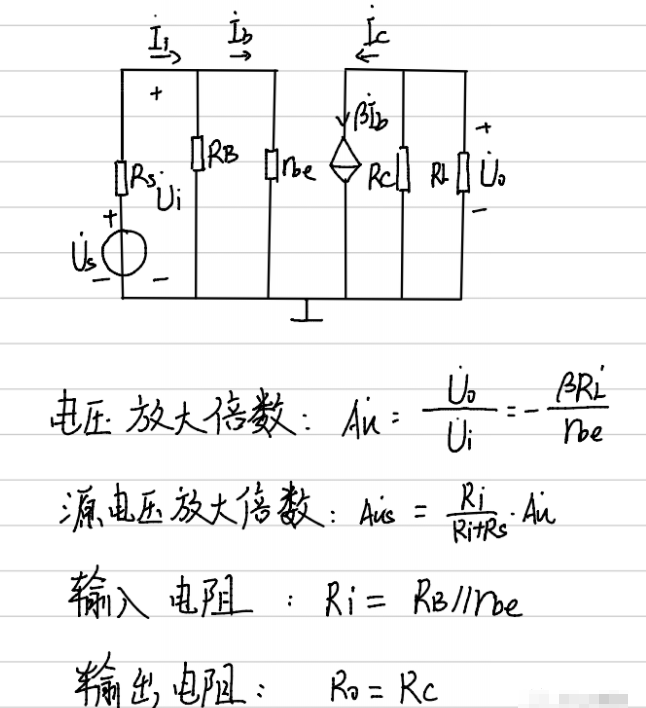 İi İb İc
+
βİb
+
Rs RB rbe Rc RL U̇o
U̇i
+
−
U̇s
− −
电压放大倍数:Ȧu = U̇o / U̇i = - βRL' / rbe
源电压放大倍数: Ȧus = Ri / Ri+Rs · Ȧu
输入电阻 : Ri = RB//rbe
输出电阻: Ro = Rc